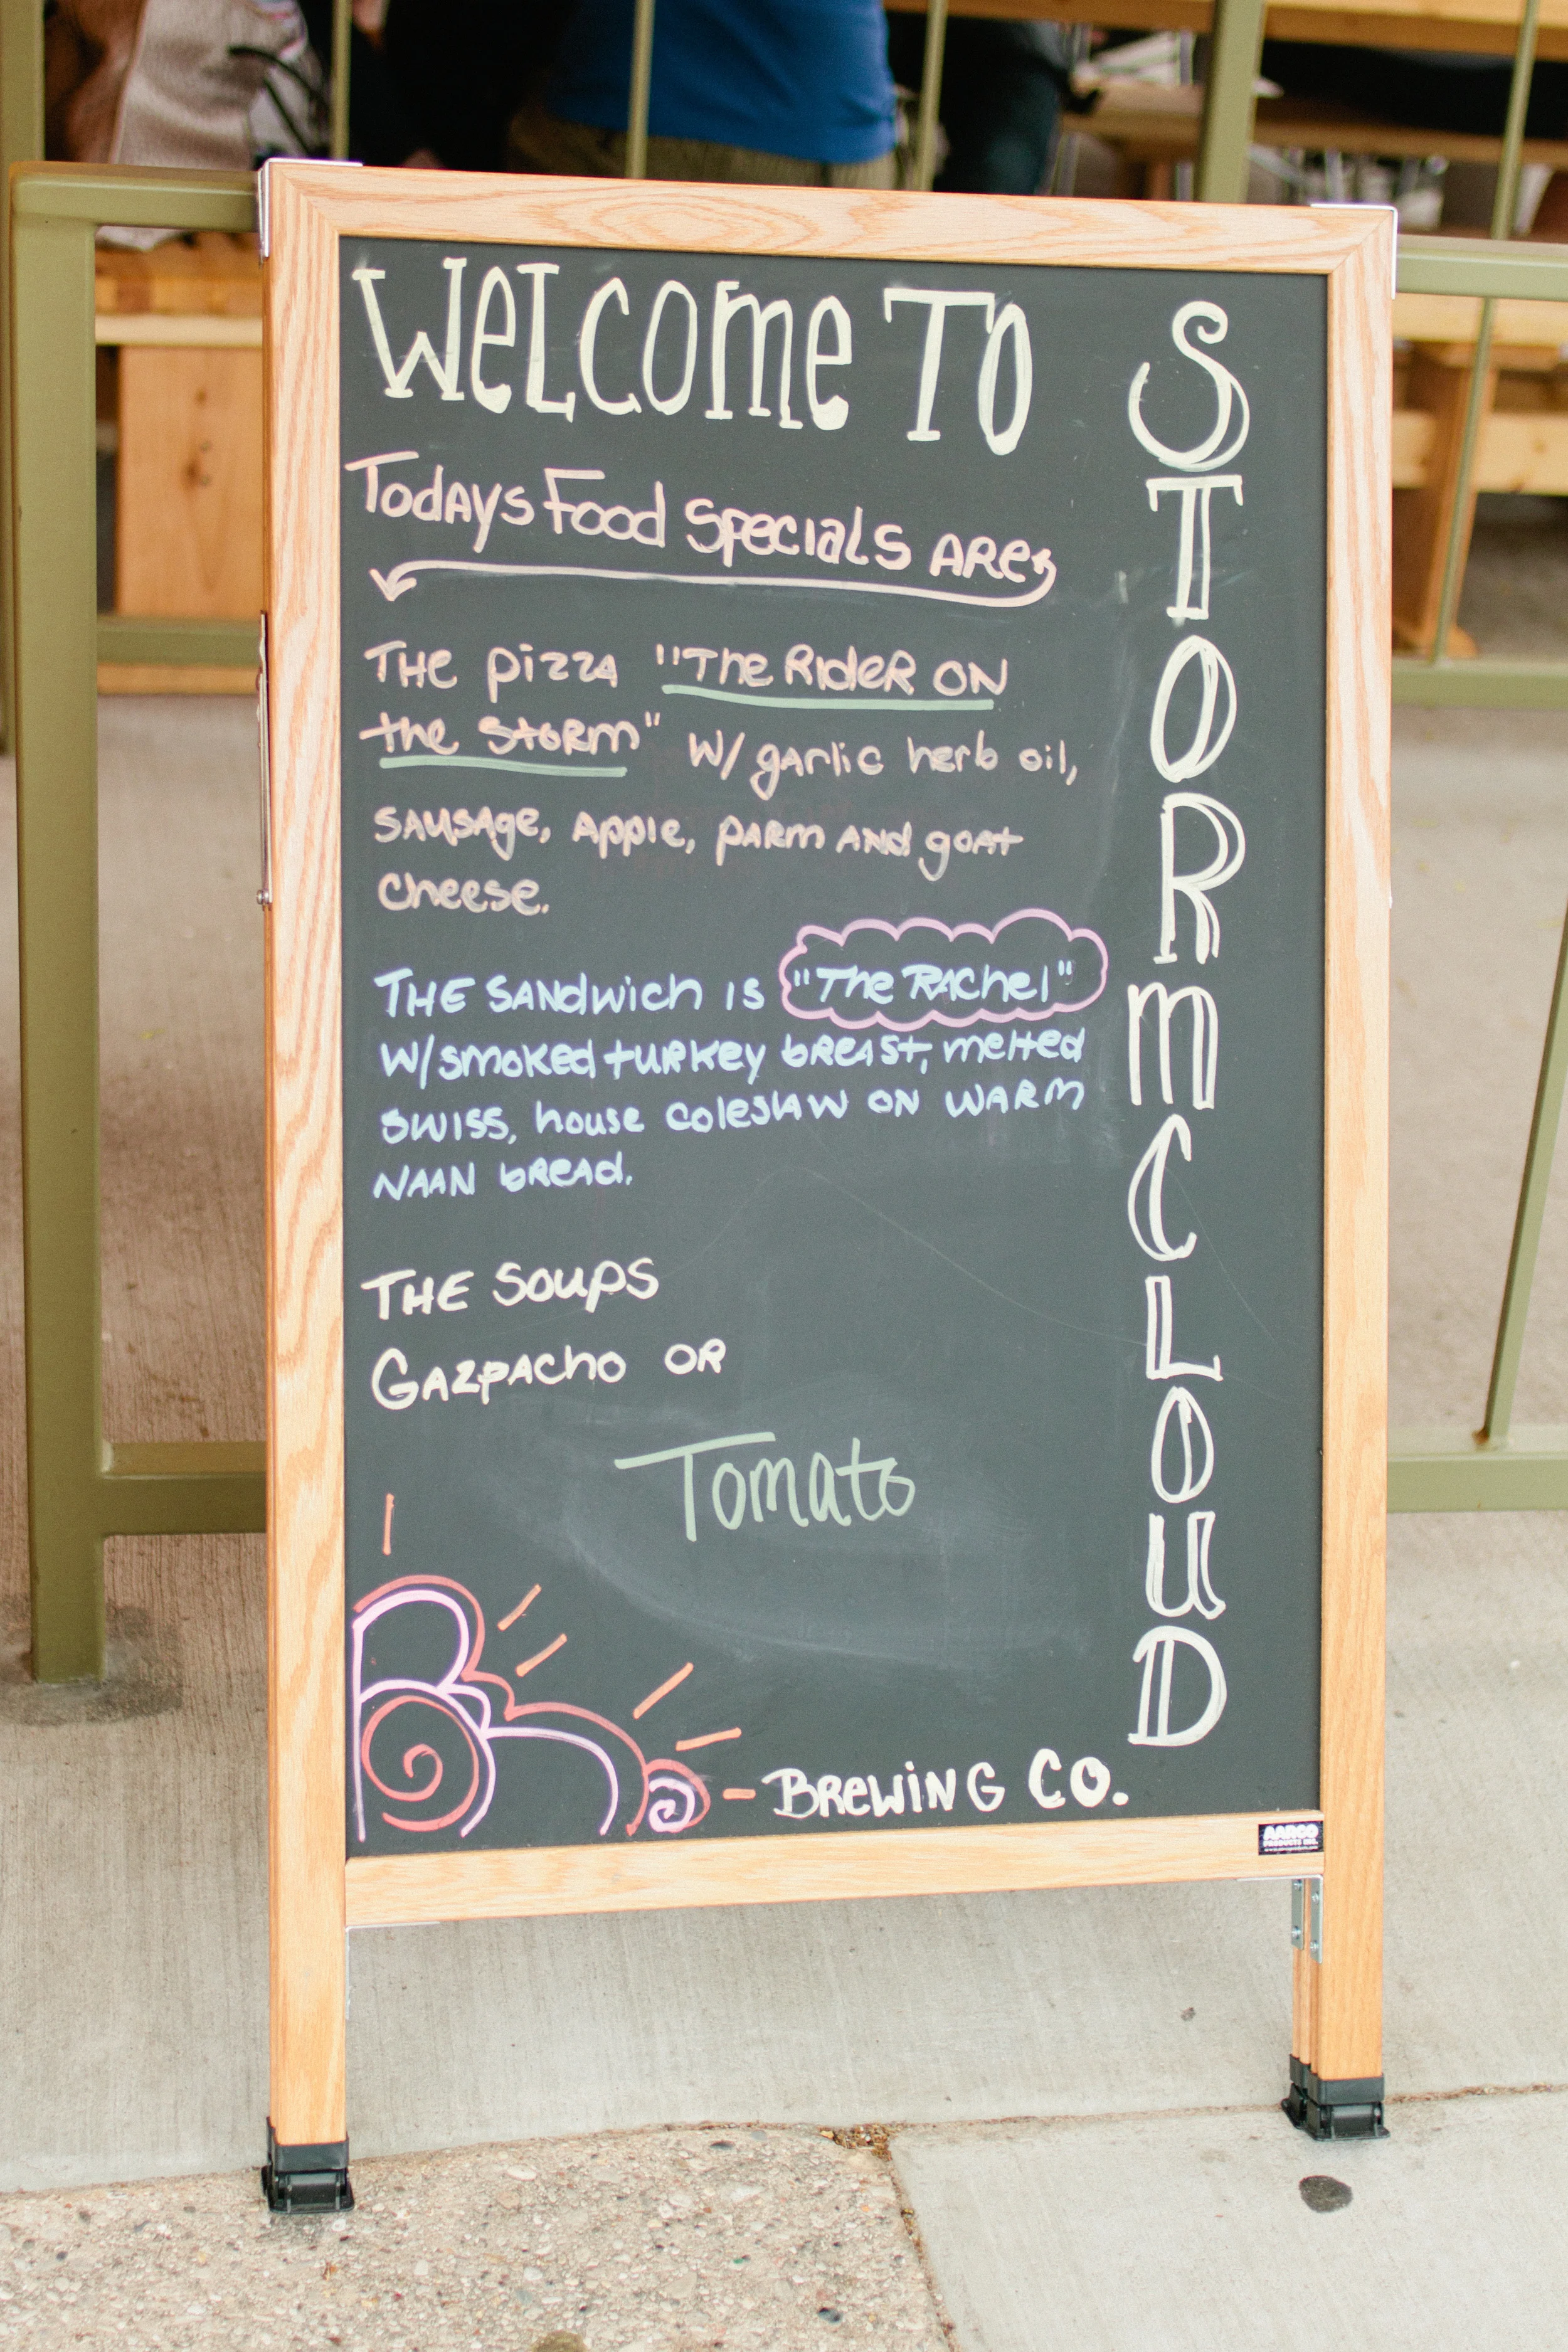 WELCOME TO
STORMCLOUD
Todays Food Specials Are
The pizza "The Rider on
the Storm" w/ garlic herb oil,
sausage, apple, parm and goat
cheese.
The sandwich is "The Rachel"
w/smoked turkey breast, melted
swiss, house coleslaw on warm
naan bread.
The Soups
Gazpacho or
Tomato
Brewing Co.
AARCO
PRODUCTS INC.